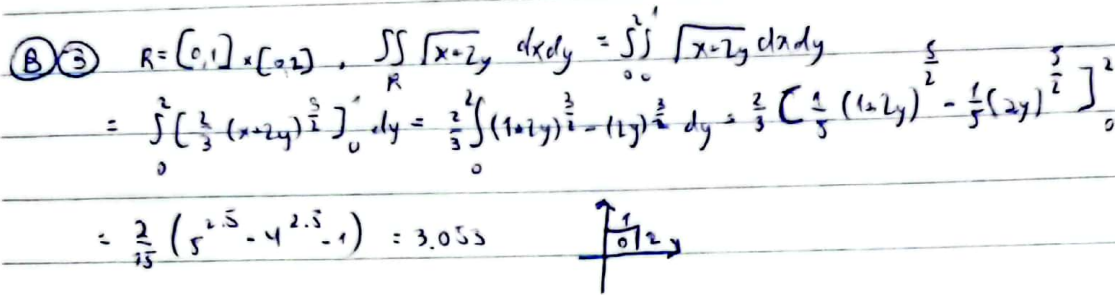 Ⓑ③ R=[0,1]×[0,2]. ∬_R √(x+2y) dxdy = ∫_0^2 ∫_0^1 √(x+2y) dxdy
= ∫_0^2 [2/3 (x+2y)^(3/2)]_0^1 dy = 2/3 ∫_0^2 (1+2y)^(3/2) - (2y)^(3/2) dy = 2/3 [1/5 (1+2y)^(5/2) - 1/5 (2y)^(5/2)]_0^2
= 2/15 (5^2.5 - 4^2.5 - 1) = 3.053
1
0 2